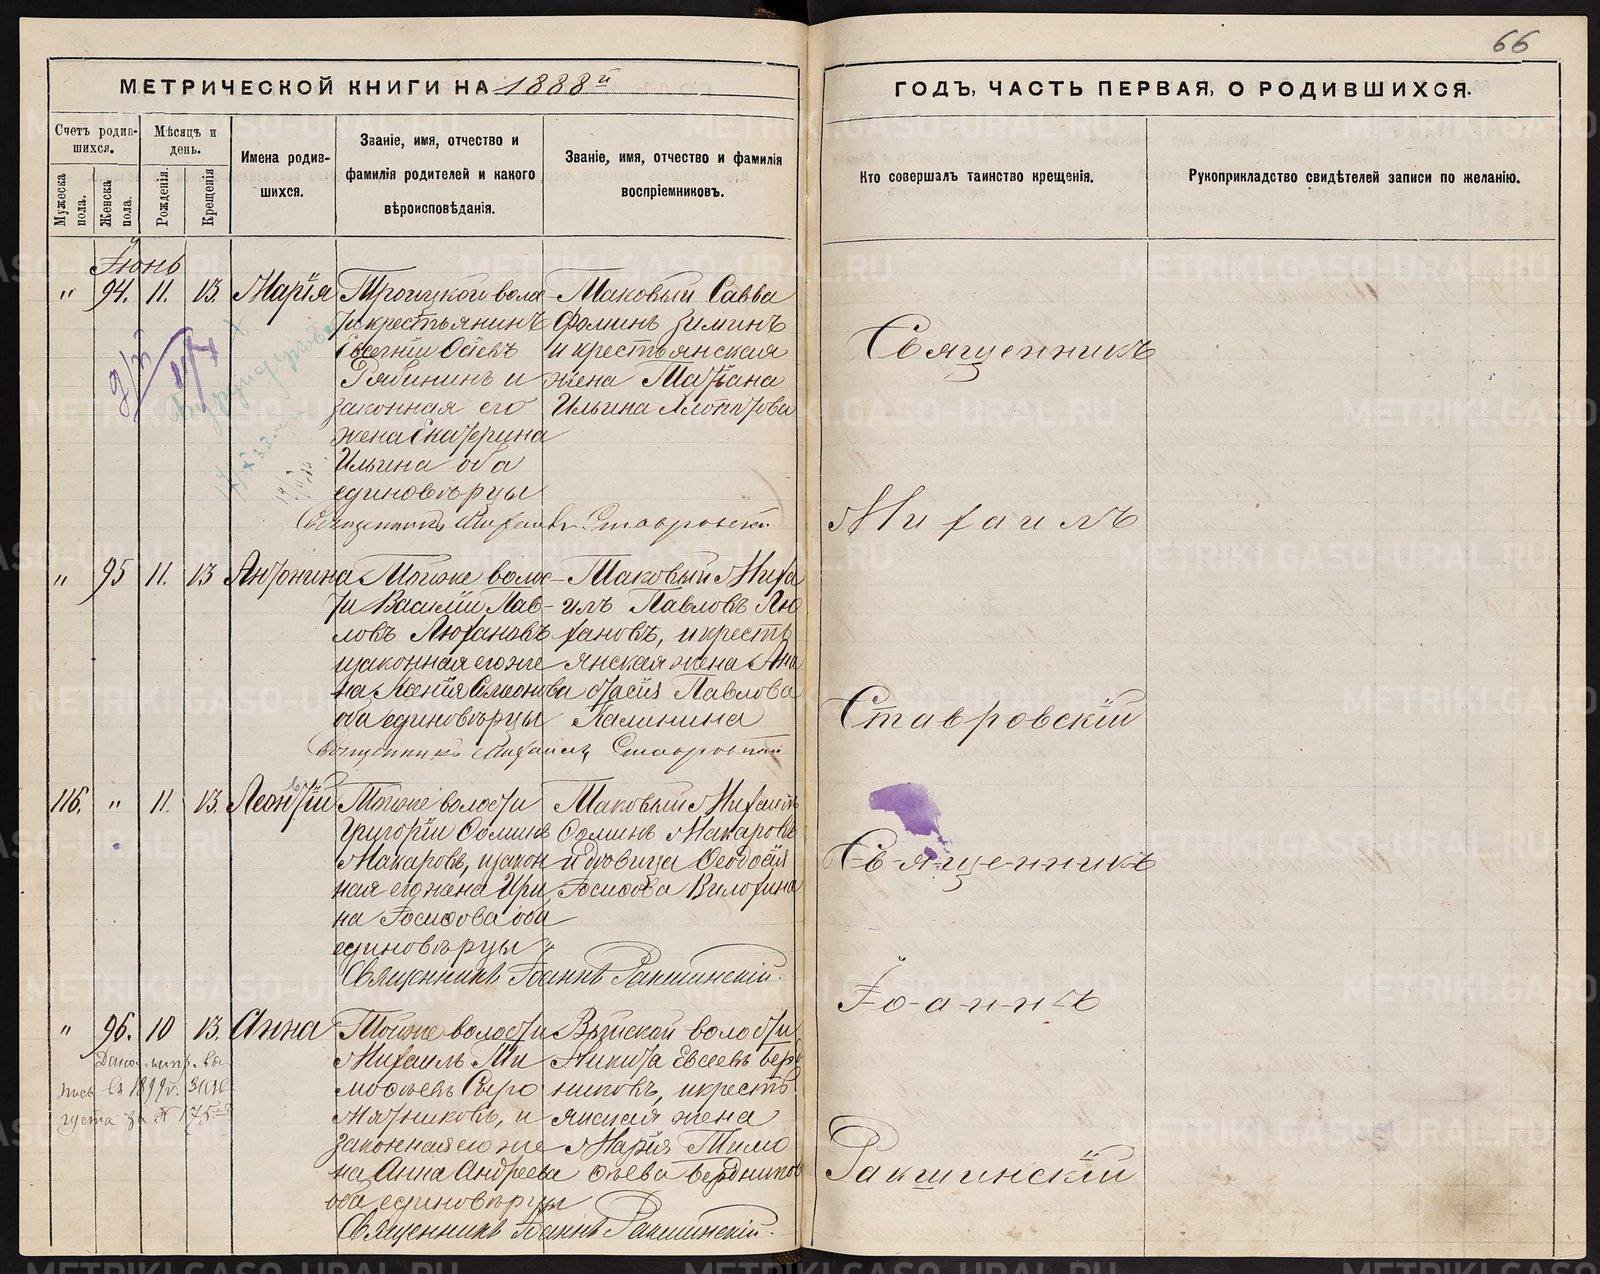 66
МЕТРИЧЕСКОЙ КНИГИ НА 1888й
ГОДЪ, ЧАСТЬ ПЕРВАЯ, О РОДИВШИХСЯ.
Счетъ родив-
шихся.
Мужеска
пола.
Женска
пола.
Мѣсяцъ и
день.
Рожденія.
Крещенія
Имена родив-
шихся.
Званіе, имя, отчество и
фамилія родителей и какого
вѣроисповѣданія.
Званіе, имя, отчество и фамилія
воспріемниковъ.
Кто совершалъ таинство крещенія.
Рукоприкладство свидѣтелей записи по желанію.
Іюнь
" 94. 11. 13. Марія
Троицкой воло
ти крестьянинъ
Евгеній Осіевъ
Рябининъ и
законная его
жена Екатерина
Ильина оба
единовѣрцы
Таковый Савва
Ѳоминъ Зиминъ
и крестьянская
жена Татіана
Ильина Хлопотова
Священникъ Михаилъ Ставровскій
Священникъ
Михаилъ
Ставровскій
" 95 11. 13 Антонина
Тойже волос-
ти Василій Пав-
ловъ Люхановъ
и законная его же
на Ксенія Симеонова
оба единовѣрцы
Таковый Миха
илъ Павловъ Лю
хановъ, и кресть
янская жена Ана
стасія Павлова
Калинина
Священникъ Михаилъ Ставровскій
116. " 11. 13. Леонтій
Тойже волости
Григорій Ѳоминъ
Макаровъ, и закон
ная его жена Ири
на Іосифова оба
единовѣрцы
Таковый Михаилъ
Ѳоминъ Макаровъ
и вдовица Ѳеодосія
Іосифова Вилохина
Священникъ Іоаннъ Ракшинскій.
Священникъ
Іоаннъ
Ракшинскій
" 96. 10 13. Анна
Тойже волости
Михаилъ Ти
моѳеевъ Сыро
мятниковъ, и
законная его же
на Анна Андреева
оба единовѣрцы
Выйской волости
Никита Евсеевъ Берд
никовъ, и кресть
янская жена
Марія Тимо
ѳеева Бердников
Священникъ Іоаннъ Ракшинскій.